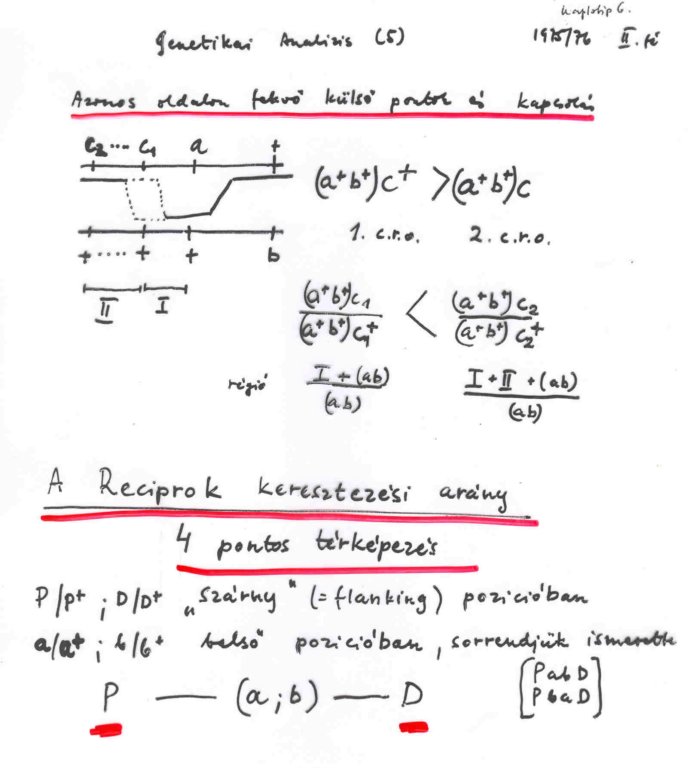 Genetikai Analizis (5) 1975/76 II. fé
Azonos oldalon fekvő külső pontok és kapcsolás
c₂ .... c₁ a +
(a⁺b⁺)c⁺ > (a⁺b⁺)c
1. c.r.o. 2. c.r.o.
+ ..... + + b
II I
(a⁺b⁺)c₁ < (a⁺b⁺)c₂
(a⁺b⁺)c₁⁺ (a⁺b⁺)c₂⁺
régió I + (ab) I + II + (ab)
(ab) (ab)
A Reciprok keresztezési arány
4 pontos térképezés
P/p⁺ ; D/D⁺ „szárny" (= flanking) pozicióban
a/a⁺ ; b/b⁺ belső pozicióban, sorrendjük
P — (a ; b) — D [PabD
PbaD]